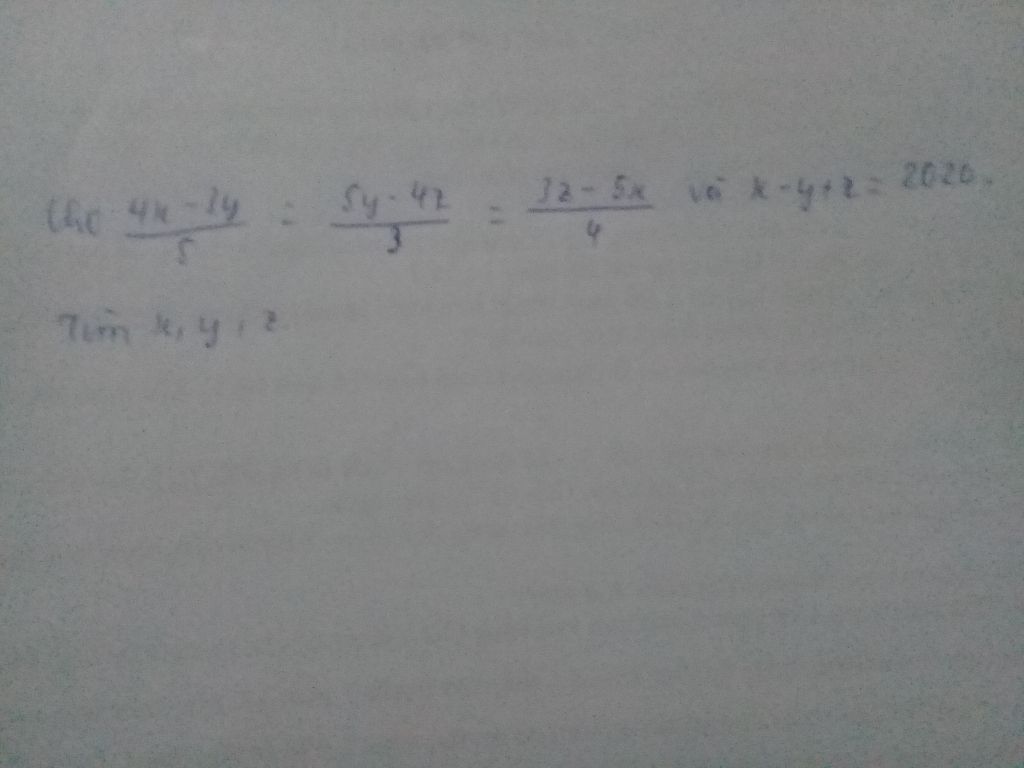 Cho 4x - 3y / 5 = 5y - 4z / 3 = 3z - 5x / 4 và x - y + z = 2020.
Tìm x, y, z.